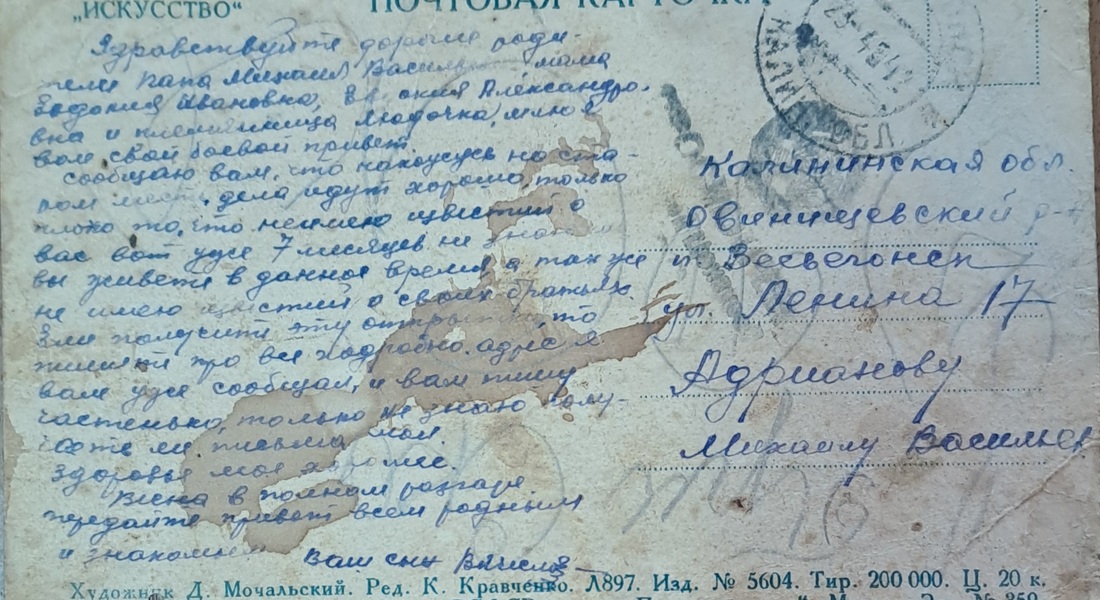 "ИСКУССТВО"
ПОЧТОВАЯ КАРТОЧКА
Здравствуйте дорогие роди-
тели папа Михаил Василь мама
Евдокия Ивановна, Александро-
вна и племянница Людочка, шлю я
вам свой боевой привет.
сообщаю вам, что нахожусь на ста-
ром месте, дела идут хорошо, только
плохо то, что неимею известий о
вас вот уже 7 месяцев не знаю
вы живете в данное время а также и
не имею известий о своих братьях.
Если получите эту открытку, то
пишите про все подробно. адрес я
вам уже сообщал, и вам пишу
частенько, только не знаю полу-
чаете ли письма мои.
Здоровье мое хорошее.
Весна в полном разгаре
передайте привет всем родным
и знакомым Ваш сын
Калининская обл.
Овинищевский р-н
Весьегонск
ул. Ленина 17
Адрианову
Михаилу Васильев
Художник Д. Мочальский. Ред. К. Кравченко. Л897. Изд. № 5604. Тир. 200 000. Ц. 20 к.